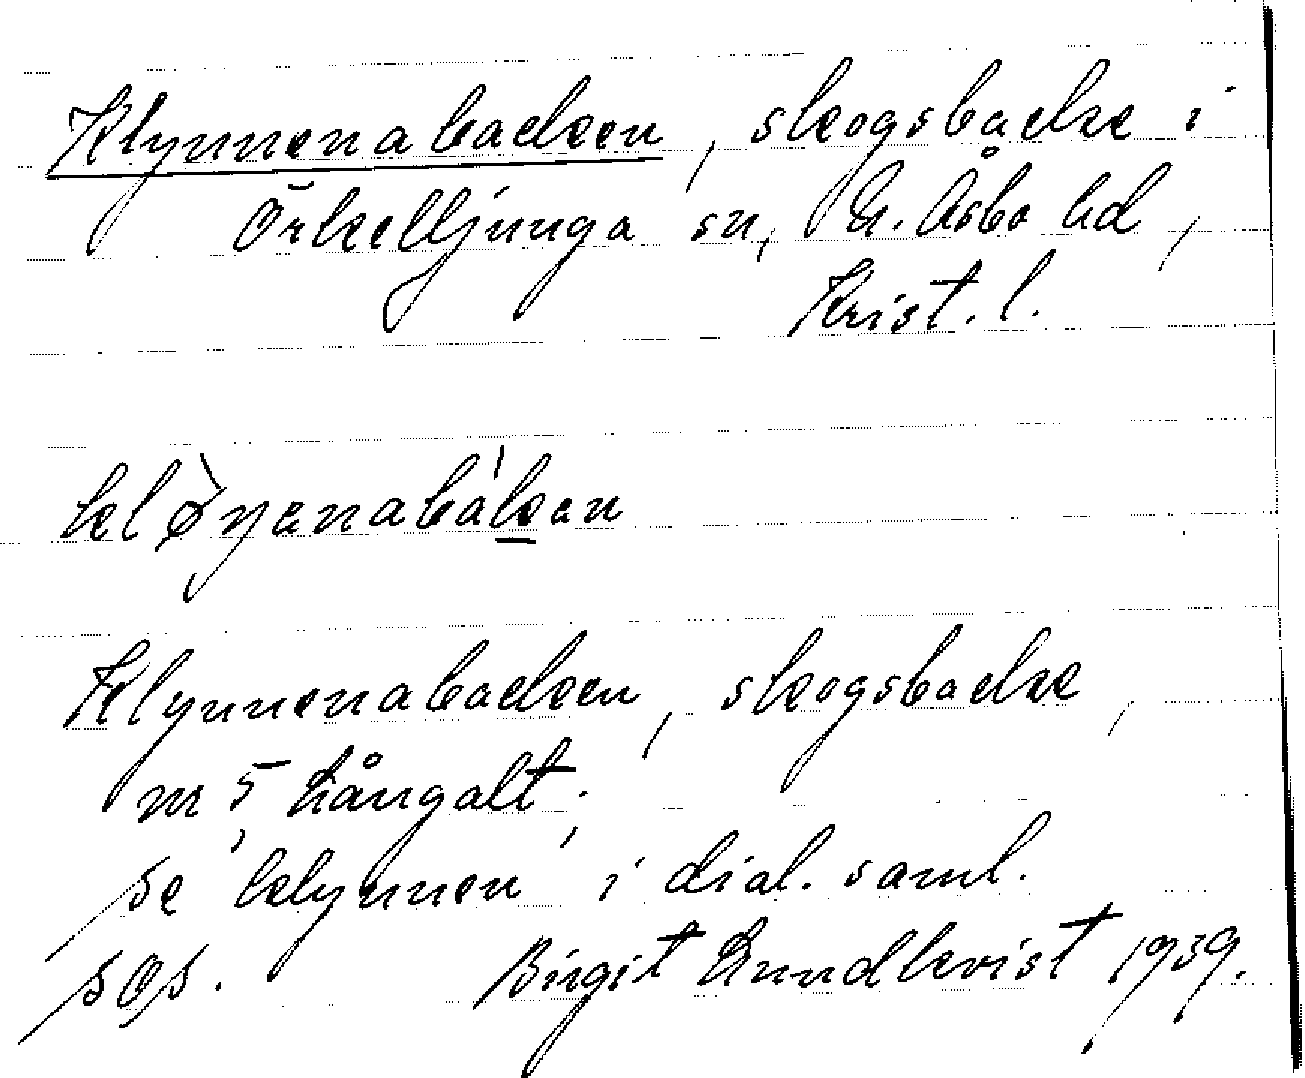 Klynnenabacken, skogsbacke i
Örkelljunga sn, N. Åsbo hd,
Krist. l.
kløynenabákan
Klynnenabacken, skogsbacke,
nr 5 Långalt.
se 'klynnen' i dial. saml.
SOS. Birgit Lundkvist 1939.